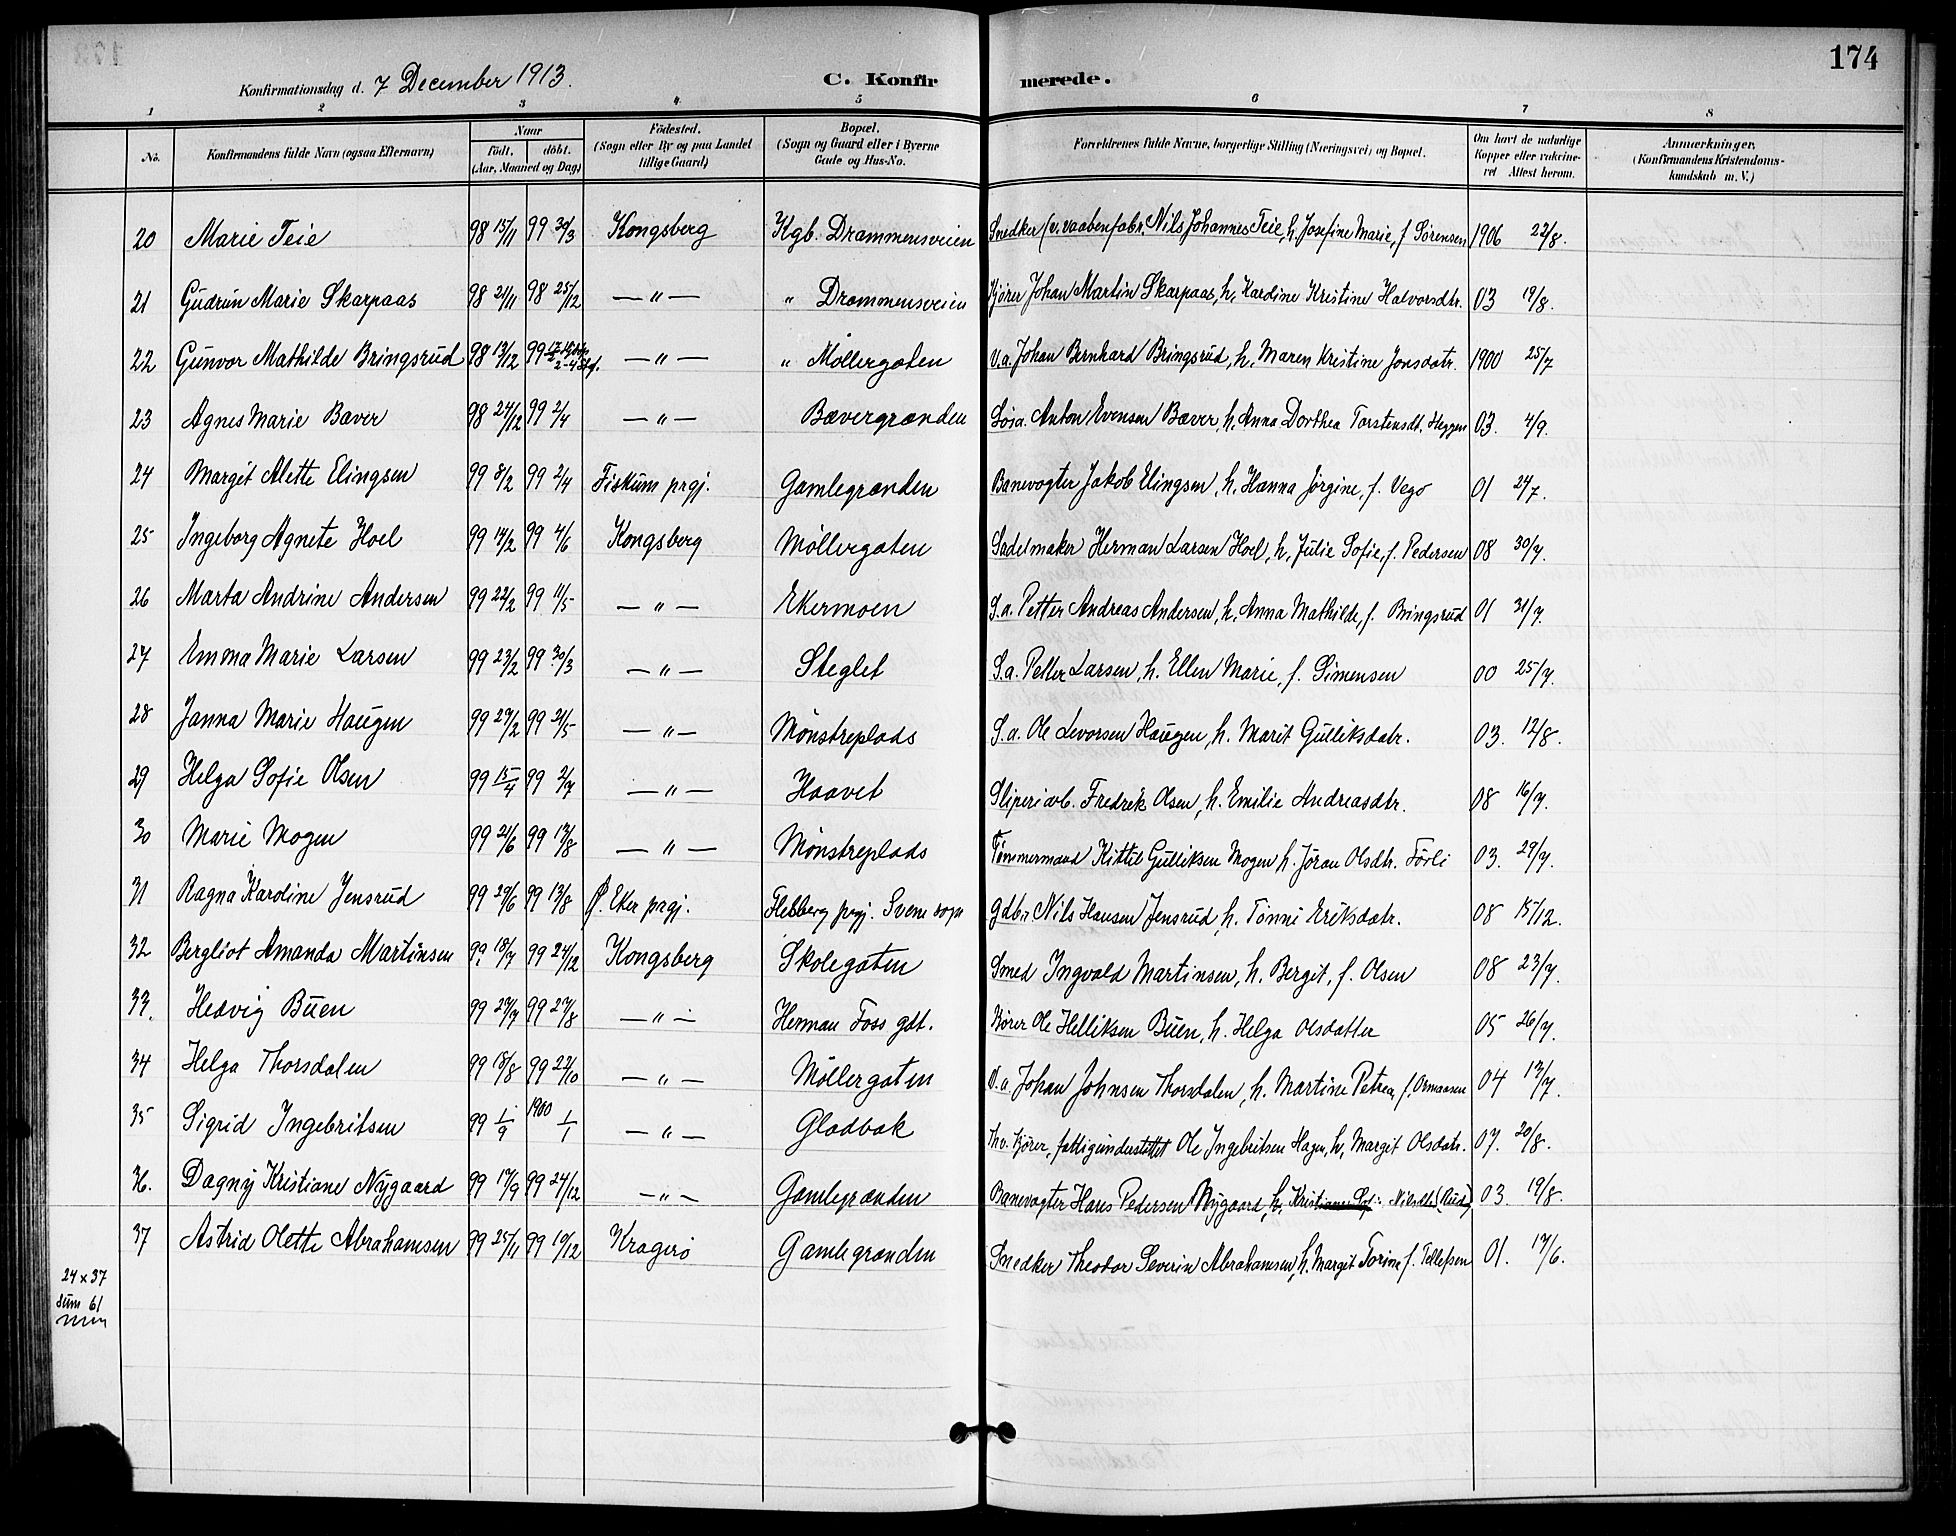 174
Konfirmationsdag d. 7 December 1913.
C. Konfirmerede.
1 2 3 4 5 6 7 8
No. | Konfirmandens fulde Navn (ogsaa Efternavn) | Naar født, døbt. (Aar, Maaned og Dag) | Fødested. (Sogn eller By og paa Landet tillige Gaard) | Bopæl. (Sogn og Gaard eller i Byerne Gade og Hus-No. | Forældrenes fulde Navne, borgerlige Stilling (Næringsvei) og Bopæl. | Om havt de naturlige Kopper eller vakcineret Attest herom. | Anmærkninger, (Konfirmandens Kristendomskundskab m. V.)
20 Marie Teie 98 15/11 99 30/3 Kongsberg Kgb. Drammensveien Snedker (v. vaabenfabr. Nils Johannes Teie, h. Josefine Marie, f. Sørensen 1906 22/8.
21 Gudrun Marie Skarpaas 98 21/11 98 25/12 — " — " Drammensveien Kjører Johan Martin Skarpaas, h. Kardine Kristine Halvorsdtr. 03 19/8.
22 Gunvor Mathilde Bringsrud 98 13/12 99 — " — " Møllergaten V.a. Johan Bernhard Bringsrud, h. Maren Kristine Jonsdatr. 1900 25/7
23 Agnes Marie Bæver 98 24/12 99 2/4 — " — Bævergrænden Anton Evensen Bæver, h. Anna Dorthea Torstensdt. Heggen 03. 4/9.
24 Margit Alette Elingsen 99 8/2 99 2/4 Fiskum prgj. Gamlegrænden Banevogter Jakob Elingsen, h. Hanna Jørgine, f. Vego 01 24/7.
25 Ingeborg Agnete Hoel 99 14/2 99 4/6 Kongsberg Møllergaten Sadelmaker Herman Larsen Hoel, h. Julie Sofie, f. Pedersen 08 30/7.
26 Marta Andrine Andersen 99 22/2 99 11/5 — " — Ekermoen S.a. Petter Andreas Andersen, h. Anna Mathilde, f. Bringsrud 01 31/7.
27 Emma Marie Larsen 99 23/2 99 30/3 — " — Steglet S.a. Petter Larsen, h. Ellen Marie, f. Simensen 00 25/7.
28 Janna Marie Haugen 99 27/2 99 21/5 — " — Mønstreplads S.a. Ole Levorsen Haugen, h. Marit Gulliksdatr. 03. 12/8.
29 Helga Sofie Olsen 99 15/4 99 2/7 — " — Haavet Sliperiarb. Fredrik Olsen, h. Emilie Andreasdtr. 08 16/7.
30 Marie Mogen 99 21/6 99 13/8 — " — Mønstreplads Tømmermand Kittil Gulliksen Mogen h. Jøran Olsdtr. Førli 03. 29/7.
31 Ragna Karoline Jensrud 99 29/6 99 13/8 Ø. Eker prgj. Flebberg prgj. Svene sogn Gdbr. Nils Hansen Jensrud, h. Tønni Eriksdatr. 08 15/12.
32 Bergliot Amanda Martinsen 99. 18/7 99 24/12 Kongsberg Skolegaten Smed Ingvald Martinsen, h. Bergit, f. Olsen 08 23/7.
33. Hedvig Buen 99 27/7 99 27/8 — " — Herman Foss gdt. Kjører Ole Helliksen Buen, h. Helga Olsdatter 05 26/7.
34 Helga Thorsdalen 99 18/8 99 22/10 — " — Møllergaten V.a. Johan Johnsen Thorsdalen, h. Martine Petrea, f. 04 13/7.
35 Sigrid Ingebritsen 99 1/9 1900 1/1 — " — Gladbak Kjører, fattigunderstøttet Ole Ingebritsen Hagen, h. Margit Olsdatr. 07. 20/8.
36. Dagny Kristiane Nygaard 99 17/9 99 24/12 — " — Gamlegrænden Banevogter Hans Pedersen Nygaard, h. 03. 19/8.
37 Astrid Olette Abrahamsen 99 25/11 99 10/12 Kragerø Gamlegrænden Snedker Theodor Severin Abrahamsen, h. Margit Torine f. Tellefsen 01. 17/6.
24 x 37
Sum 61